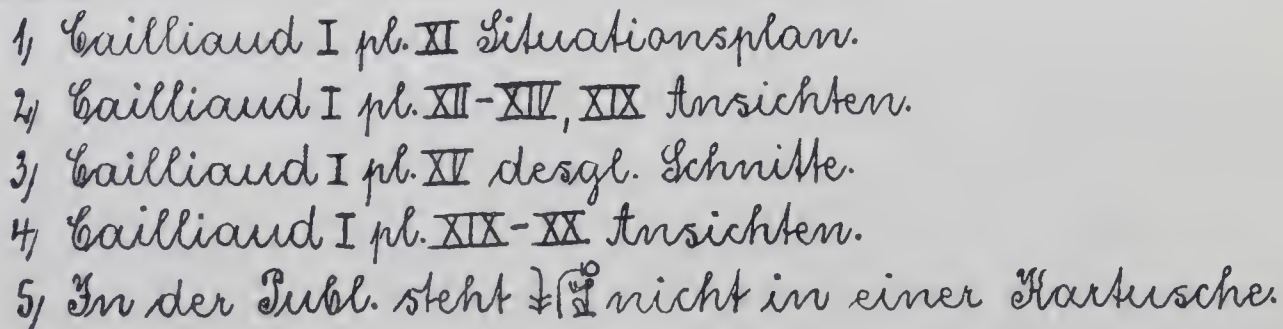 1) Cailliaud I pl. XI Situationsplan.
2) Cailliaud I pl. XII-XIV, XIX Ansichten.
3) Cailliaud I pl. XV desgl. Schnitte.
4) Cailliaud I pl. XIX-XX Ansichten.
5) In der Publ. steht nicht in einer Kartusche.